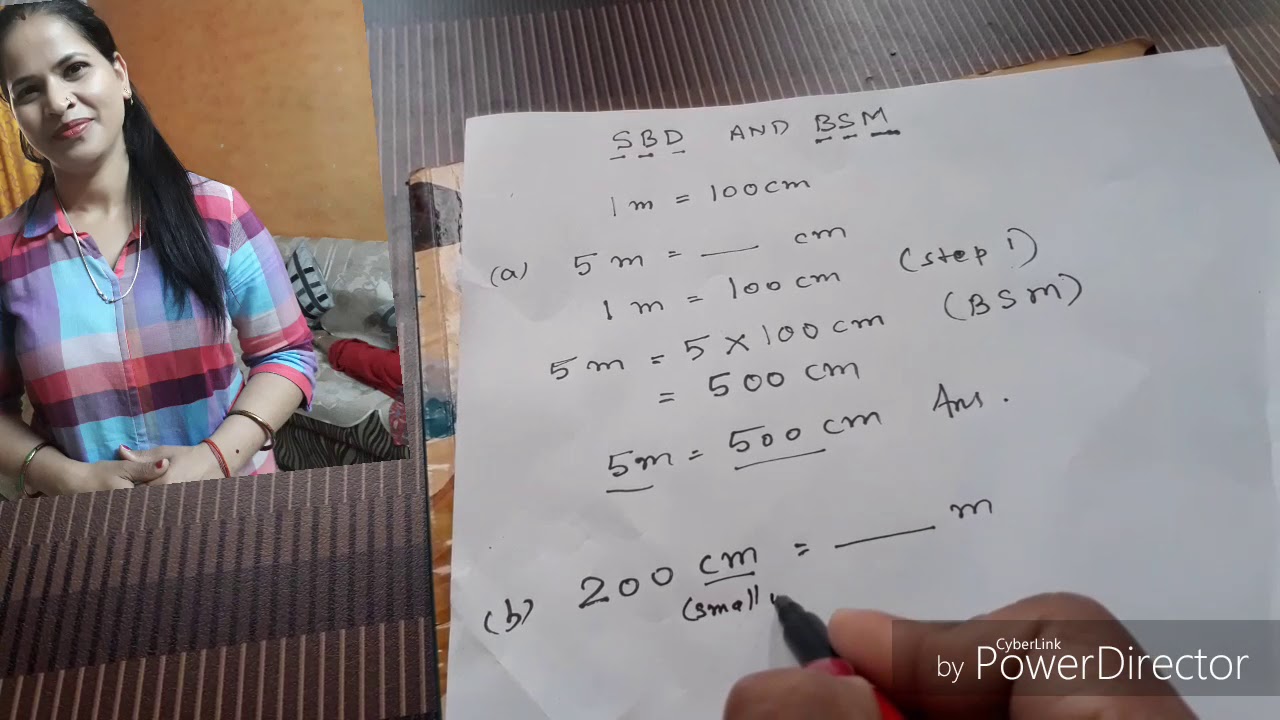 SBD AND BSM
1 m = 100 cm
(a) 5 m = ___ cm
1 m = 100 cm (step 1)
5 m = 5 × 100 cm (BSM)
= 500 cm
5m = 500 cm Ans.
(b) 200 cm = ___ m
(small
CyberLink
by PowerDirector